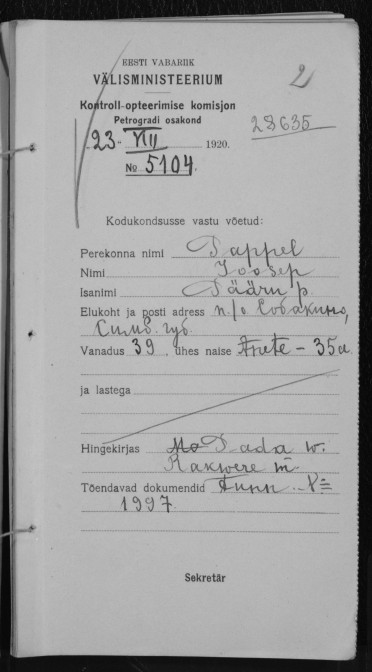 2
EESTI VABARIIK
VÄLISMINISTEERIUM
Kontroll-opteerimise komisjon
Petrogradi osakond
28635
„23“ VII 1920.
№ 5104.
Kodukondsusse vastu võetud:
Perekonna nimi Pappel
Nimi Joosep
Isanimi Pääru p.
Elukoht ja posti adress п/о Собакино,
Симб. губ.
Vanadus 39, ühes naise Anete - 35a
ja lastega
Hingekirjas Pada w.
Rakwere m
Tõendavad dokumendid
1997
Sekretär